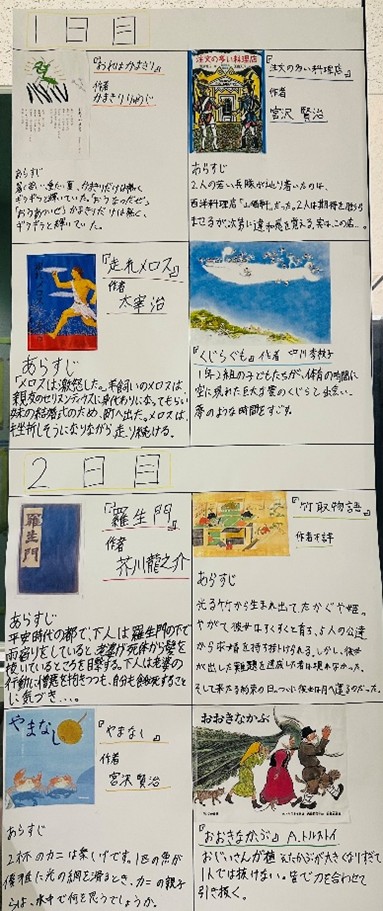 1日目
『おれはかまきり』
作者
かまきりりゅうじ
あらすじ
ギラギラと輝いていた。「おうなつだぜ」
「おうあついぜ」かまきりだけは熱く
ギラギラと輝いていた。
注文の多い料理店
『注文の多い料理店』
作者
宮沢 賢治
あらすじ
2人の若い兵隊がたどり着いたのは、
西洋料理店「山猫軒」だった。2人は期待を膨ら
ませるが、次第に違和感を覚える。実はこの店…。
『走れメロス』
作者
太宰 治
あらすじ
「メロスは激怒した。」羊飼いのメロスは、
親友のセリヌンティウスに身代わりになってもらい
妹の結婚式のため、町へ出た。メロスは、
挫折しそうになりながら走り続ける。
『くじらぐも』 作者 中川 李枝子
1年2組の子どもたちが、体育の時間に
空に現れた巨大な雲のくじらと出会い、
夢のような時間をすごす。
2日目
羅生門
『羅生門』
作者
芥川龍之介
あらすじ
平安時代の都で、下人は羅生門の下で
雨宿りをしていると老婆が死体から髪を
抜いているところを目撃する。下人は老婆の
行動に憎悪を抱きつつも、自分も餓死すること
に気づき・・・。
『竹取物語』
作者不詳
あらすじ
光る竹から生まれ出でたかぐや姫。
やがて彼女はすくすくと育ち、5人の公達
から求婚を持ち掛けられる。しかし、彼女
が出した難題を達成した者は現れなかった。
そして来たる約束の日。ついに彼女は月へ還るのだった。
やまなし
『やまなし』
作者
宮沢 賢治
あらすじ
2杯のカニは楽しげです。1匹の魚が
優雅に光の網を滑るとき、カニの親子
らは、水中で何を思うでしょうか。
おおきなかぶ
『おおきなかぶ』 A.トルストイ
おじいさんが植えたかぶが大きくなりすぎて
1人では抜けない。皆で力を合わせて
引き抜く。